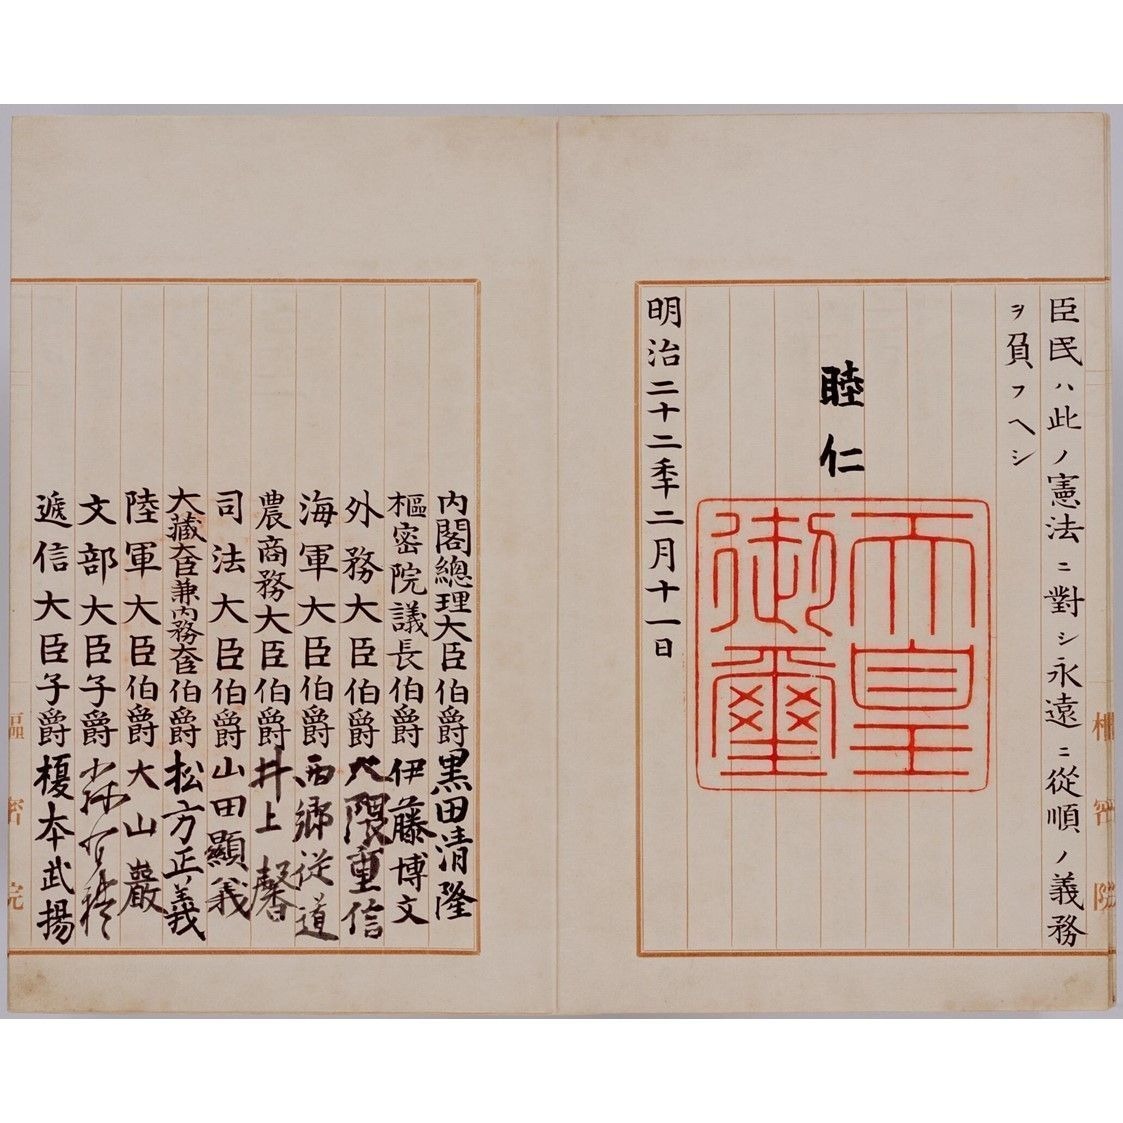 樞密院
臣民ハ此ノ憲法ニ對シ永遠ニ從順ノ義務
ヲ負フヘシ
睦仁
天皇
御璽
明治二十二年二月十一日
內閣總理大臣伯爵黒田清隆
樞密院議長伯爵伊藤博文
外務大臣伯爵大隈重信
海軍大臣伯爵西郷従道
農商務大臣伯爵井上馨
司法大臣伯爵山田顯義
大藏大臣兼內務大臣伯爵松方正義
陸軍大臣伯爵大山巖
文部大臣子爵森有禮
遞信大臣子爵榎本武揚
樞密院